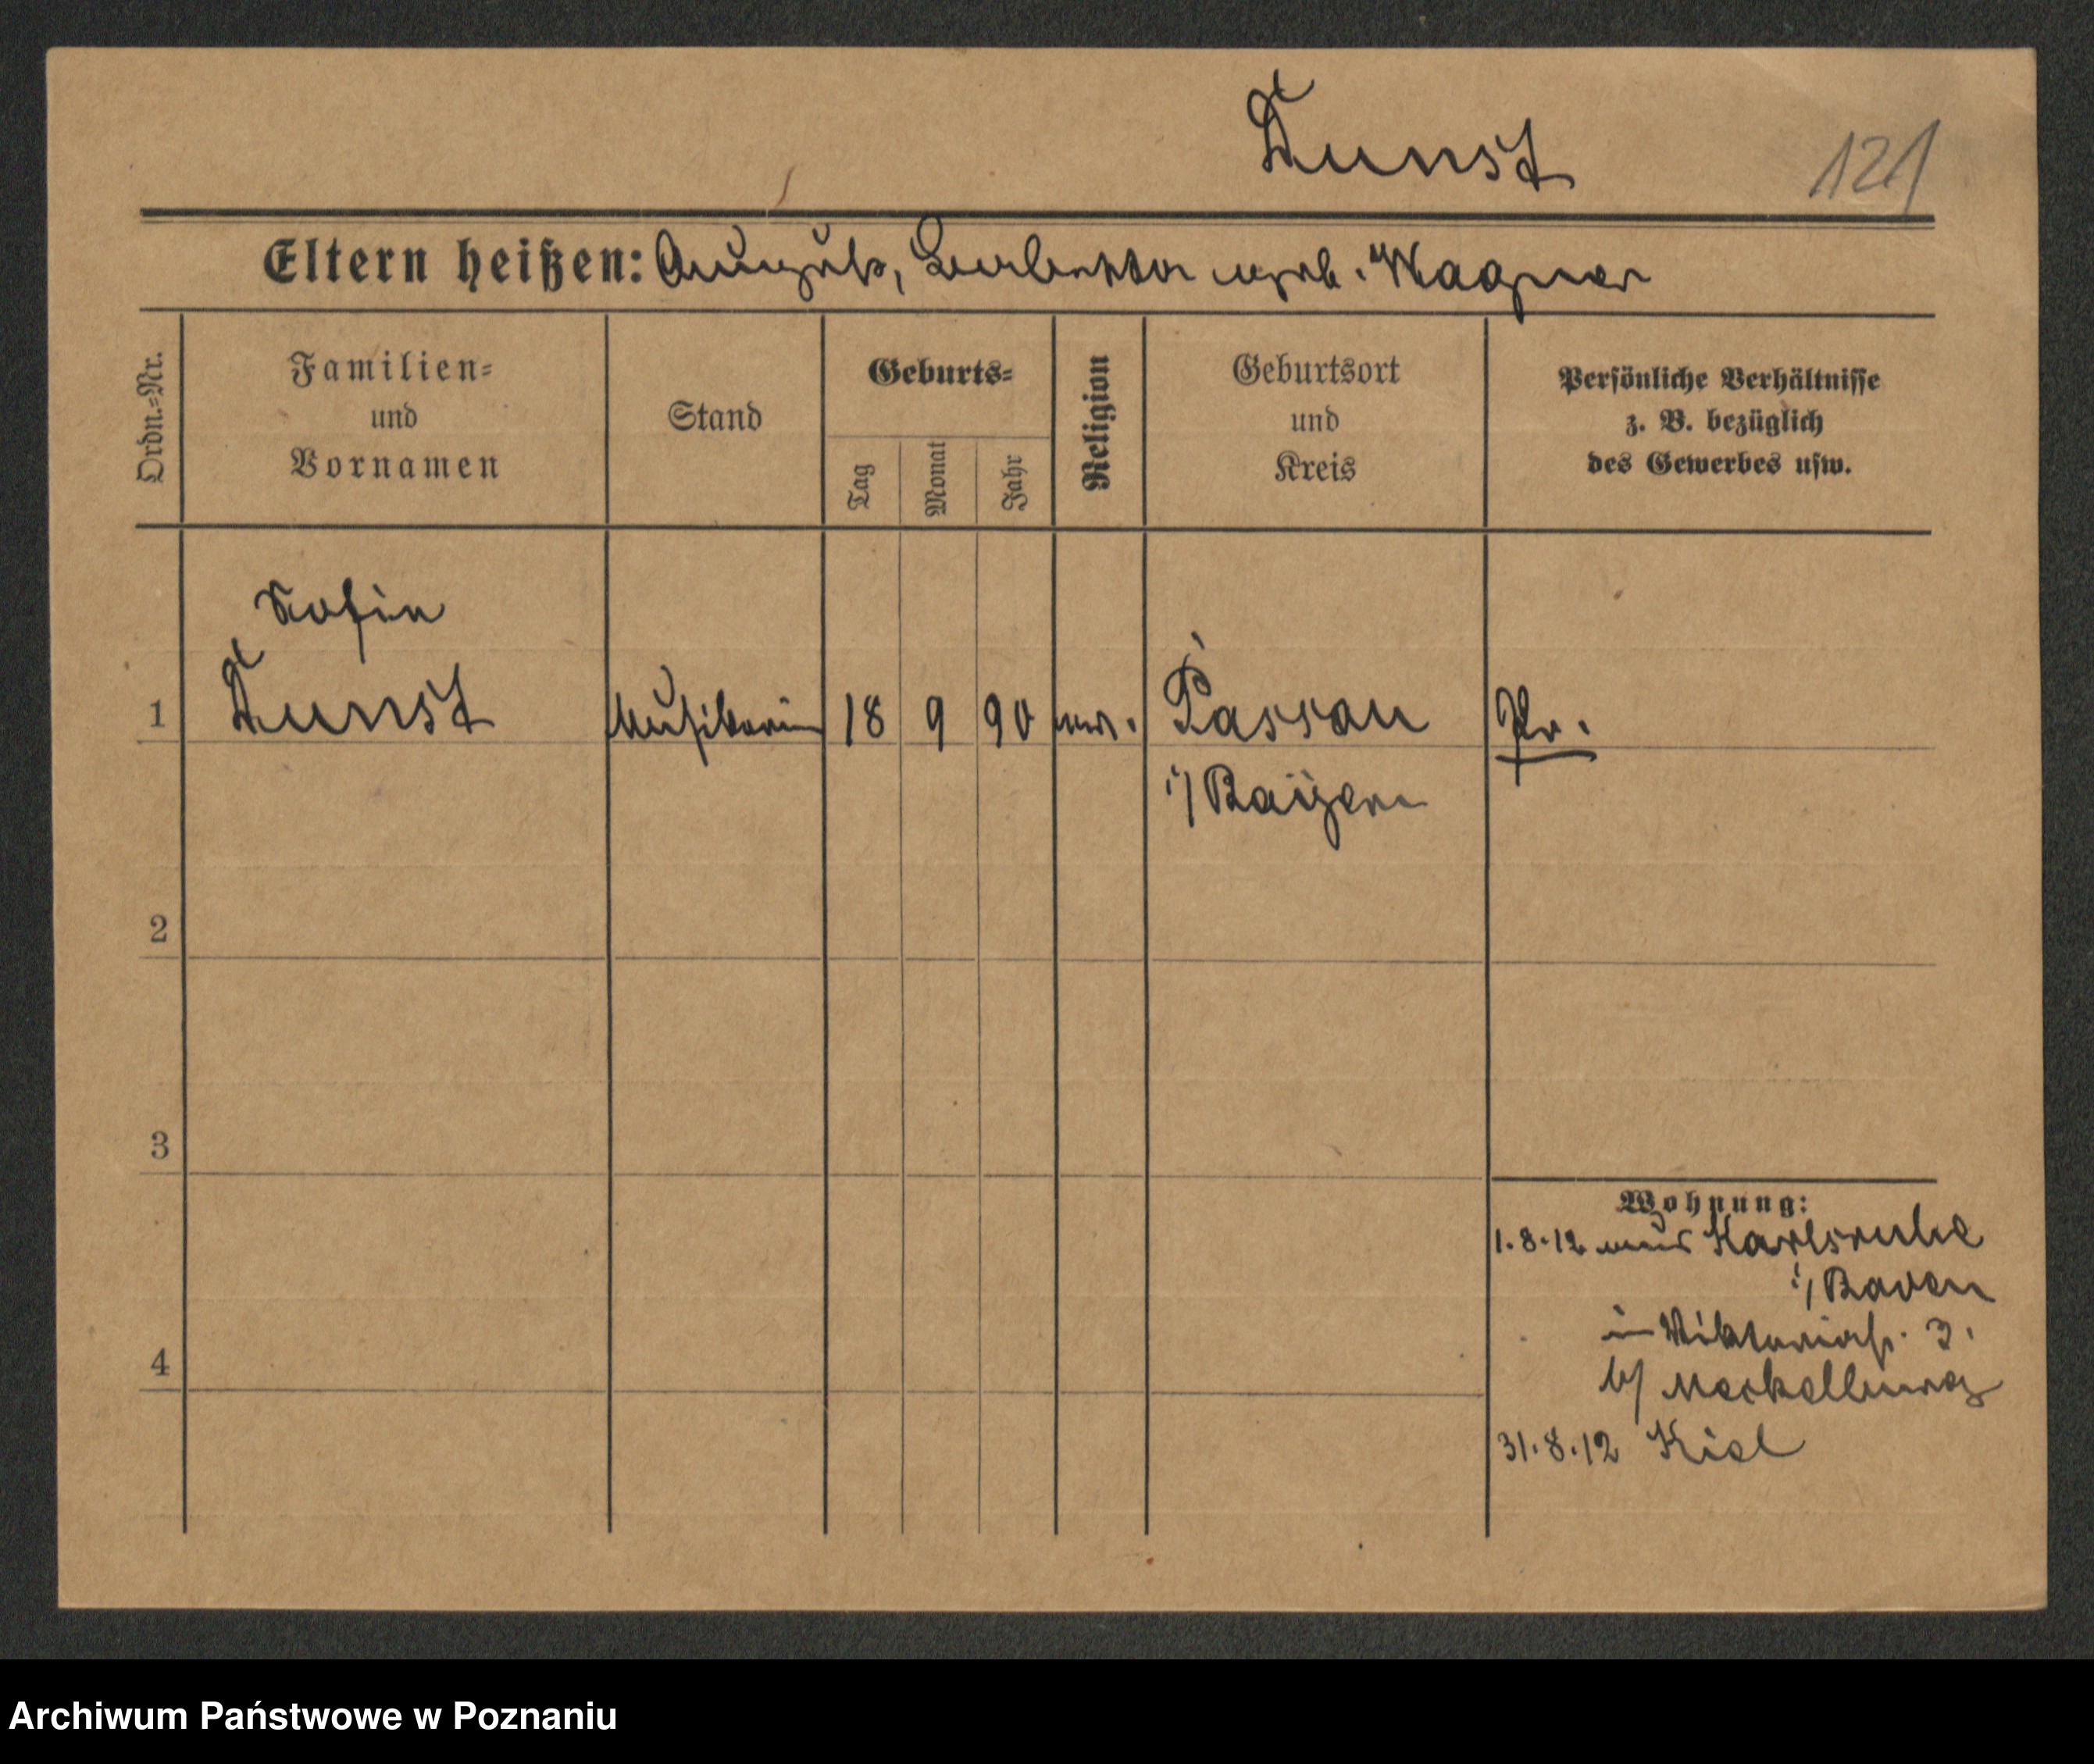 Dunst 121
Eltern heißen: August, geb. Wagner
Ordn.=Nr.
Familien=
und
Vornamen
Stand
Geburts=
Tag
Monat
Jahr
Religion
Geburtsort
und
Kreis
Persönliche Verhältnisse
z. B. bezüglich
des Gewerbes usw.
Sofie
1 Dunst Musikerin 18 9 90 Passau Pr.
i/ Baÿern
2
3
Wohnung:
1.8.12 aus Karlsruhe
i/ Baden
in Viktoriastr. 3.
4
b/ Meckelburg
31.8.12 Kiel
Archiwum Państwowe w Poznaniu